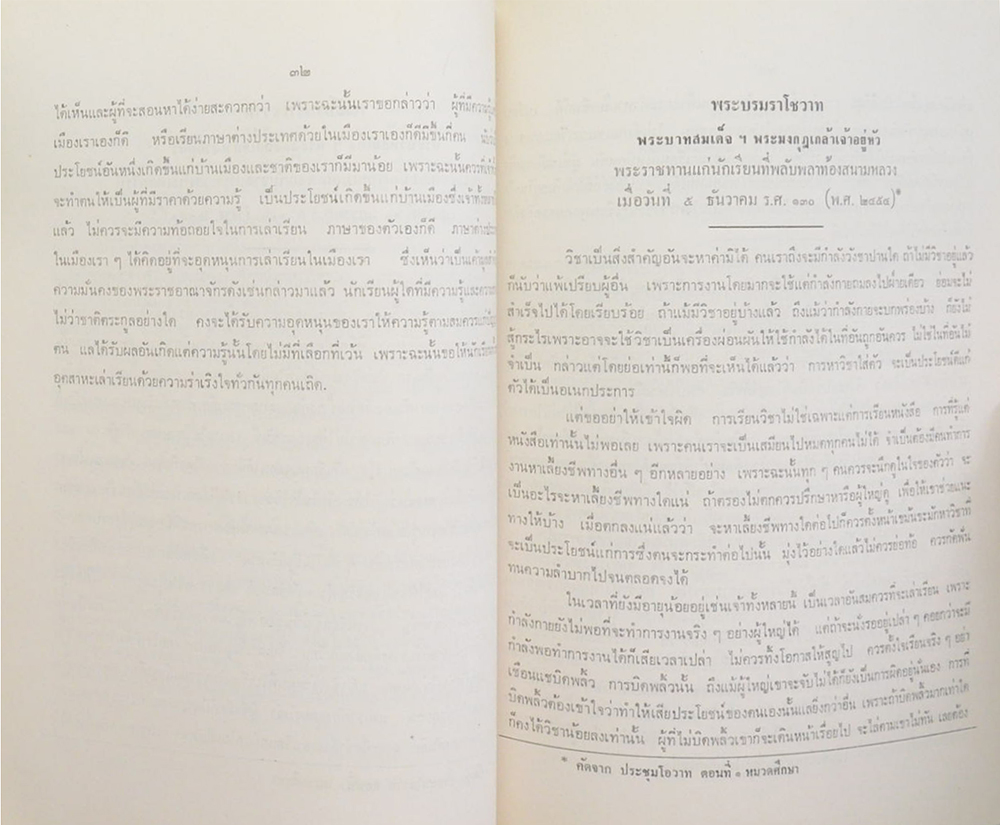 ๓๒
ได้เห็นและผู้ที่จะสอนหาได้ง่ายสะดวกกว่า เพราะฉะนั้นเราขอกล่าวว่า ผู้ที่มีความรู้ใน
เมืองเราเองก็ดี หรือเรียนภาษาต่างประเทศด้วยในเมืองเราเองก็ดีมีขึ้นกี่คน
ประโยชน์อันหนึ่งเกิดขึ้นแก่บ้านเมืองและชาติของเราก็มีมาน้อย เพราะฉะนั้นควรที่
จะทำตนให้เป็นผู้ที่มีราคาด้วยความรู้ เป็นประโยชน์เกิดขึ้นแก่บ้านเมืองซึ่งเจ้าตั้ง
แล้ว ไม่ควรจะมีความท้อถอยใจในการเล่าเรียน ภาษาของตัวเองก็ดี ภาษาต่าง
ในเมืองเรา ๆ ได้คิดอยู่ที่จะอุดหนุนการเล่าเรียนในเมืองเรา ซึ่งเห็นว่าเป็น
ความมั่นคงของพระราชอาณาจักรดังเช่นกล่าวมาแล้ว นักเรียนผู้ใดที่มีความรู้และ
ไม่ว่าชาติตระกูลอย่างใด คงจะได้รับความอุดหนุนของเราให้ความรู้ตามสมควรแก่
ตน แลได้รับผลอันเกิดแต่ความรู้นั้นโดยไม่มีที่เลือกที่เว้น เพราะฉะนั้นขอให้นักเรียน
อุตสาหะเล่าเรียนด้วยความร่าเริงใจทั่วกันทุกคนเถิด.
พระบรมราโชวาท
พระบาทสมเด็จ ฯ พระมงกุฎเกล้าเจ้าอยู่หัว
พระราชทานแก่นักเรียนที่พลับพลาท้องสนามหลวง
เมื่อวันที่ ๕ ธันวาคม ร.ศ. ๑๓๐ (พ.ศ. ๒๔๕๔)*
วิชาเป็นสิ่งสำคัญอันจะหาค่ามิได้ คนเราถึงจะมีกำลังวังชาปานใด ถ้าไม่มีวิชาอยู่แล้ว
ก็นับว่าแพ้เปรียบผู้อื่น เพราะการงานโดยมากจะใช้แต่กำลังกายถมลงไปฝ่ายเดียว ย่อมจะไม่
สำเร็จไปได้โดยเรียบร้อย ถ้าแม้มีวิชาอยู่บ้างแล้ว ถึงแม้ว่ากำลังกายจะบกพร่องบ้าง ก็ยังไม่
สู้กระไรเพราะอาจจะใช้วิชาเป็นเครื่องผ่อนผันให้ใช้กำลังได้ในที่อันถูกอันควร ไม่ใช้ในที่อันไม่
จำเป็น กล่าวแต่โดยย่อเท่านี้ก็พอที่จะเห็นได้แล้วว่า การหาวิชาใส่ตัว จะเป็นประโยชน์ดีแก่
ตัวได้เป็นอเนกประการ
แต่ขออย่าให้เข้าใจผิด การเรียนวิชาไม่ใช่เฉพาะแต่การเรียนหนังสือ การที่รู้แต่
หนังสือเท่านั้นไม่พอเลย เพราะคนเราจะเป็นเสมียนไปหมดทุกคนไม่ได้ จำเป็นต้องมีคนทำการ
งานหาเลี้ยงชีพทางอื่น ๆ อีกหลายอย่าง เพราะฉะนั้นทุก ๆ คนควรจะนึกดูในใจของตัวว่า จะ
เป็นอะไรจะหาเลี้ยงชีพทางใดแน่ ถ้าตรองไม่ตกควรปรึกษาหารือผู้ใหญ่ดู เพื่อให้เขาช่วยแนะ
ทางให้บ้าง เมื่อตกลงแน่แล้วว่า จะหาเลี้ยงชีพทางใดต่อไปก็ควรตั้งหน้าเขม้นขะมักหาวิชาที่
จะเป็นประโยชน์แก่การซึ่งตนจะกระทำต่อไปนั้น มุ่งไว้อย่างใดแล้วไม่ควรย่อท้อ ควรกัดฟัน
ทนความลำบากไปจนตลอดจงได้
ในเวลาที่ยังมีอายุน้อยอยู่เช่นเจ้าทั้งหลายนี้ เป็นเวลาอันสมควรที่จะเล่าเรียน เพราะ
กำลังกายยังไม่พอที่จะทำการงานจริง ๆ อย่างผู้ใหญ่ได้ แต่ถ้าจะนั่งรออยู่เปล่า ๆ คอยกว่าจะมี
กำลังพอทำการงานได้ก็เสียเวลาเปล่า ไม่ควรทิ้งโอกาสให้สูญไป ควรตั้งใจเรียนจริง ๆ อย่า
เชือนแชบิดพลิ้ว การบิดพลิ้วนั้น ถึงแม้ผู้ใหญ่เขาจะจับไม่ได้ก็ยังเป็นการผิดอยู่นั่นเอง การที่
บิดพลิ้วต้องเข้าใจว่าทำให้เสียประโยชน์ของตนเองนั้นแลยิ่งกว่าอื่น เพราะถ้าบิดพลิ้วมากเท่าใด
ก็คงได้วิชาน้อยลงเท่านั้น ผู้ที่ไม่บิดพลิ้วเขาก็จะเดินหน้าเรื่อยไป จะไล่ตามเขาไม่ทัน เลยต้อง
* คัดจาก ประชุมโอวาท ตอนที่ ๑ หมวดศึกษา